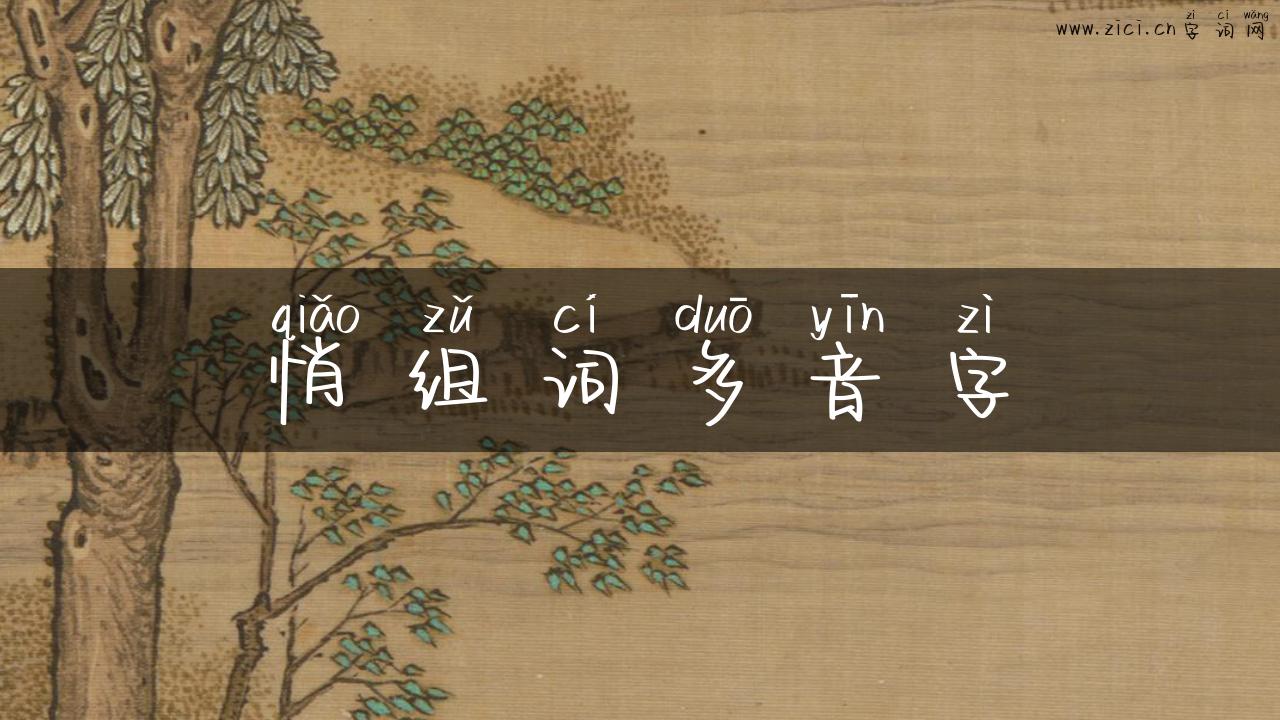 zì cí wǎng
www.zici.cn 字词网
qiǎo zǔ cí duō yīn zì
悄组词多音字